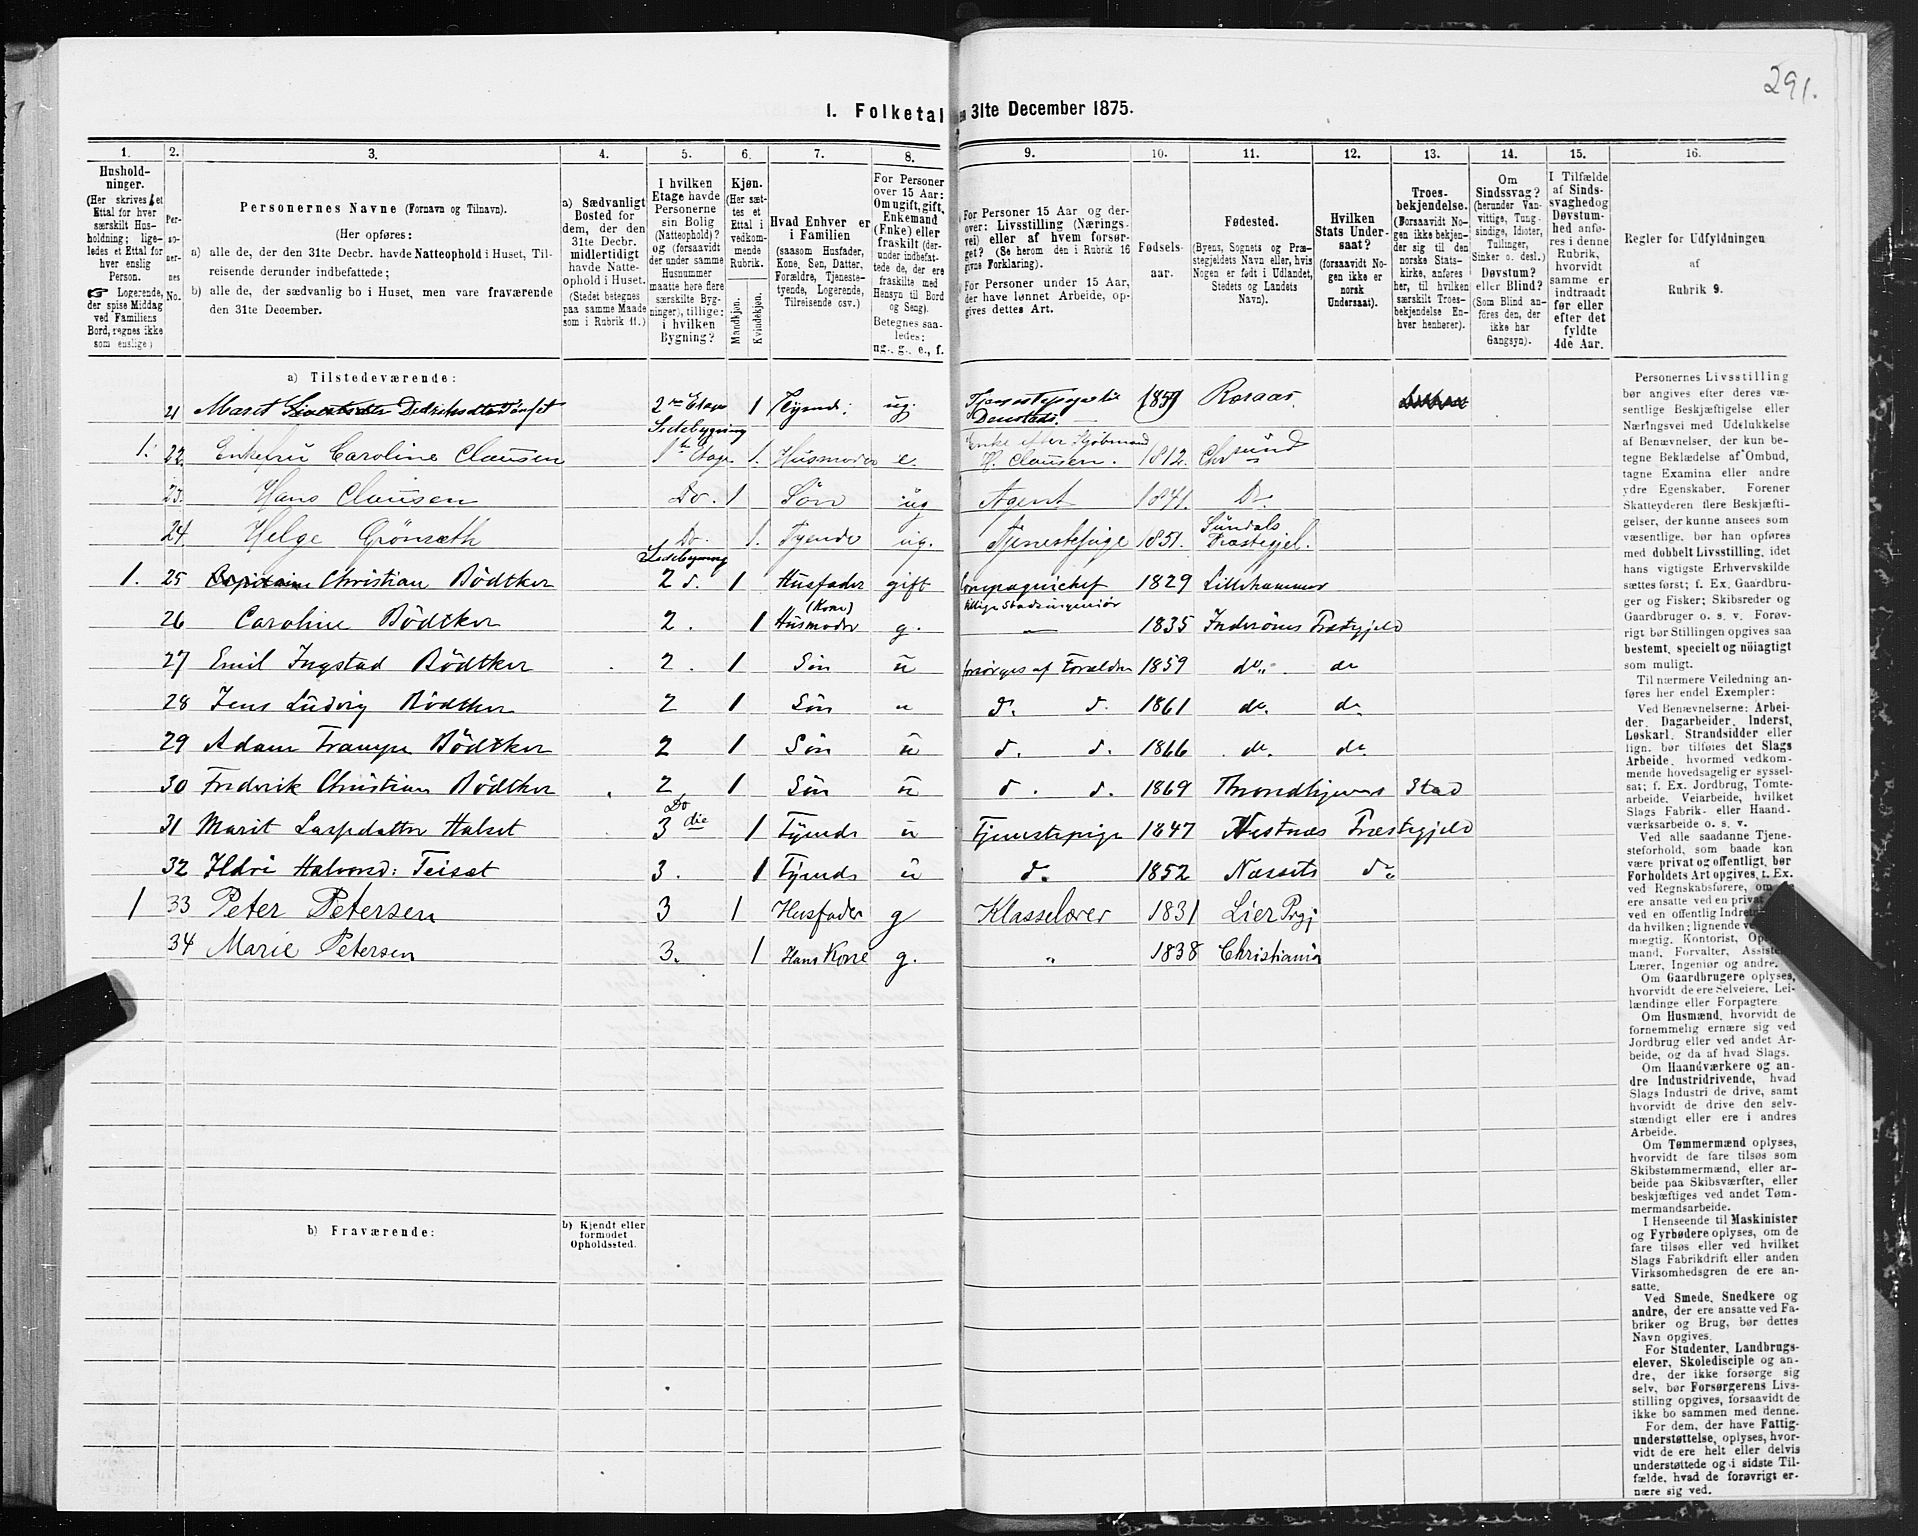 291.
I. Folketal den 31te December 1875.
1. 2. 3. 4. 5. 6. 7. 8. 9. 10. 11. 12. 13. 14. 15. 16.
Hushold-
ninger.
(Her skrives et
Ettal for hver
særskilt Hus-
holdning; lige-
ledes et Ettal for
hver enslig
Person.
☞ Logerende,
der spise Middag
ved Familiens
Bord, regnes ikke
som enslige)
Per-
so-
ner-
nes
No.
Personernes Navne (Fornavn og Tilnavn).
(Her opføres:
a) alle de, der den 31te Decbr. havde Natteophold i Huset, Til-
reisende derunder indbefattede;
b) alle de, der sædvanlig bo i Huset, men vare fraværende
den 31te December.
a) Sædvanligt
Bosted for
dem, der den
31te Decbr.
midlertidigt
havde Natte-
ophold i Huset.
(Stedet betegnes
paa samme Maade
som i Rubrik 11.)
I hvilken
Etage havde
Personerne
sin Bolig
(Natteophold)?
og (forsaavidt
der under samme
Husnummer
maatte høre flere
særskilte Byg-
ninger), tillige:
i hvilken
Bygning?
Kjøn.
(Her sæt-
tes et
Ettal i
vedkom-
mende
Rubrik.
Mandkjøn.
Kvindekjøn.
Hvad Enhver er
i Familien
(saasom Husfader,
Kone, Søn, Datter,
Forældre, Tjeneste-
tyende, Logerende,
Tilreisende osv.)
For Personer
over 15 Aar:
Om ugift, gift,
Enkemand
(Enke) eller
fraskilt (der-
under indbefat-
tede de, der ere
fraskilte med
Hensyn til Bord
og Seng).
Betegnes saa-
ledes:
ug., g., e., f.
For Personer 15 Aar og der-
over: Livsstilling (Nærings-
vei) eller af hvem forsør-
get? (Se herom den i Rubrik 16
givne Forklaring).
For Personer under 15 Aar,
der have lønnet Arbeide, op-
gives dettes Art.
Fødsels-
aar.
Fødested.
(Byens, Sognets og Præ-
stegjeldets Navn eller, hvis
Nogen er født i Udlandet,
Stedets og Landets
Navn).
Hvilken
Stats Under-
saat?
(forsaavidt No-
gen ikke er
norsk
Undersaat).
Troes-
bekjendelse.
(Forsaavidt No-
gen ikke bekjen-
der sig til den
norske Stats-
kirke, anføres
her, til hvilken
særskilt Troes-
bekjendelse En-
hver henhører).
Om
Sindssvag?
(herunder Van-
vittige, Tung-
sindige, Idioter,
Tullinger,
Sinker o. desl.)
Døvstum?
eller Blind?
(Som Blind an-
føres den, der
ikke har
Gangsyn).
I Tilfælde
af Sinds-
svaghed og
Døvstum-
hed anfø-
res i denne
Rubrik,
hvorvidt
samme er
indtraadt
før eller
efter det
fyldte
4de Aar.
Regler for Udfyldningen
af
Rubrik 9.
a) Tilstedeværende:
21 Maret 2den Etage 1 Tyende ug. 1851 Røraas.
Sidebygning
1. 22. Enkefru Caroline Clausen 1ste Etage 1. Husmoder e. Enke efter Kjøbmand H. Clausen. 1812. Chrsund
23. Hans Clausen Do. 1 Søn ug Agent 1841. Do.
24. Helge Grönsæth Do. 1. Tyende ug. Tjenestepige 1851. Sundals Præstegjel.
Sidebygning
1. 25 Capitain Christian Bödtker 2 d. 1 Husfader gift Compagnichef tillige Stadsingeniör 1829 Lillehammer
26 Caroline Bödtker 2. 1 Husmoder (Kone) g. — 1835 Inderöens Præstegjeld
27 Emil Ingstad Bödtker 2. 1 Sön u forsörges af Forældre 1859 do. do
28 Jens Ludvig Bödtker 2 1 Sön u d. d. 1861 do. do.
29 Adam Trampe Bödtker 2 1 Sön u d. d. 1866 do. do.
30 Frederik Christian Bödtker 2 1 Sön u d. d. 1869 Throndhjems Stad
31 Marit Larsdatter Halset Do 3die 1 Tyende u Tjenestepige 1847 Præstegjeld
32 Ildri Halvorsd: Teiset 3. 1 Tyende u d. 1852 Næssets do
1 33 Peter Petersen 3 1 Husfader g Klasselærer 1831 Lier Prgj
34 Marie Petersen 3. 1 Hans Kone g. " 1838 Christiania
b) Fraværende:
b) Kjendt eller
formodet
Opholdssted.
Personernes Livsstilling
bør angives efter deres væ-
sentlige Beskjæftigelse eller
Næringsvei med Udelukkelse
af Benævnelser, der kun be-
tegne Beklædelse af Ombud,
tagne Examina eller andre
ydre Egenskaber. Forener
Skatteyderen flere Beskjæfti-
gelser, der kunne ansees som
væsentlige, bør han opføres
med dobbelt Livsstilling, idet
hans vigtigste Erhvervskilde
sættes først; f. Ex. Gaardbru-
ger og Fisker; Skibsreder og
Gaardbruger o. s. v. Forøv-
rigt bør Stillingen opgives saa
bestemt, specielt og nöiagtigt
som muligt.
Til nærmere Veiledning an-
føres her endel Exempler:
Ved Benævnelserne: Arbei-
der, Dagarbeider, Inderst,
Løskarl, Strandsidder eller
lign. bør tilføies det Slags
Arbeide, hvormed vedkom-
mende hovedsagelig er syssel-
sat; f. Ex. Jordbrug, Tomte-
arbeide, Veiarbeide, hvilket
Slags Fabrik- eller Haand-
værksarbeide o. s. v.
Ved alle saadanne Tjene-
steforhold, som baade kan
være privat og offentligt, bør
Forholdets Art opgives, t. Ex.
ved Regnskabsførere, om
ere ansatte ved en privat
ved en offentlig Indretn
da hvilken; lignende ve
mægtig, Kontorist, Op
mand, Forvalter, Assiste
Lærer, Ingeniør og andre.
Om Gaardbrugere oplyses,
hvorvidt de ere Selveiere, Lei-
lændinge eller Forpagtere.
Om Husmænd, hvorvidt de
fornemmelig ernære sig ved
Jordbrug eller ved andet Ar-
beide, og da af hvad Slags.
Om Haandværkere og an-
dre Industridrivende, hvad
Slags Industri de drive, samt
hvorvidt de drive den selv-
stændigt eller ere i andres
Arbeide.
Om Tømmermænd oplyses,
hvorvidt de fare tilsøs som
Skibstømmermænd, eller ar-
beide paa Skibsværfter, eller
beskjæftiges ved andet Tøm-
mermandsarbeide.
I Henseende til Maskinister
og Fyrbødere oplyses, om de
fare tilsøs eller ved hvilket
Slags Fabrikdrift eller anden
Virksomhedsgren de ere an-
satte.
Ved Smede, Snedkere og
andre, der ere ansatte ved Fa-
briker og Brug, bør dettes
Navn opgives.
For Studenter, Landbrugs-
elever, Skoledisciple og an-
dre, der ikke forsørge sig
selv, bør Forsørgerens Livs-
stilling opgives, forsaavidt de
ikke bo sammen med denne.
For dem, der have Fattig-
understøttelse, oplyses, hvor-
vidt de ere helt eller delvis
understøttede og i sidste Til-
fælde, hvad de forøvrigt er-
nære sig ved.